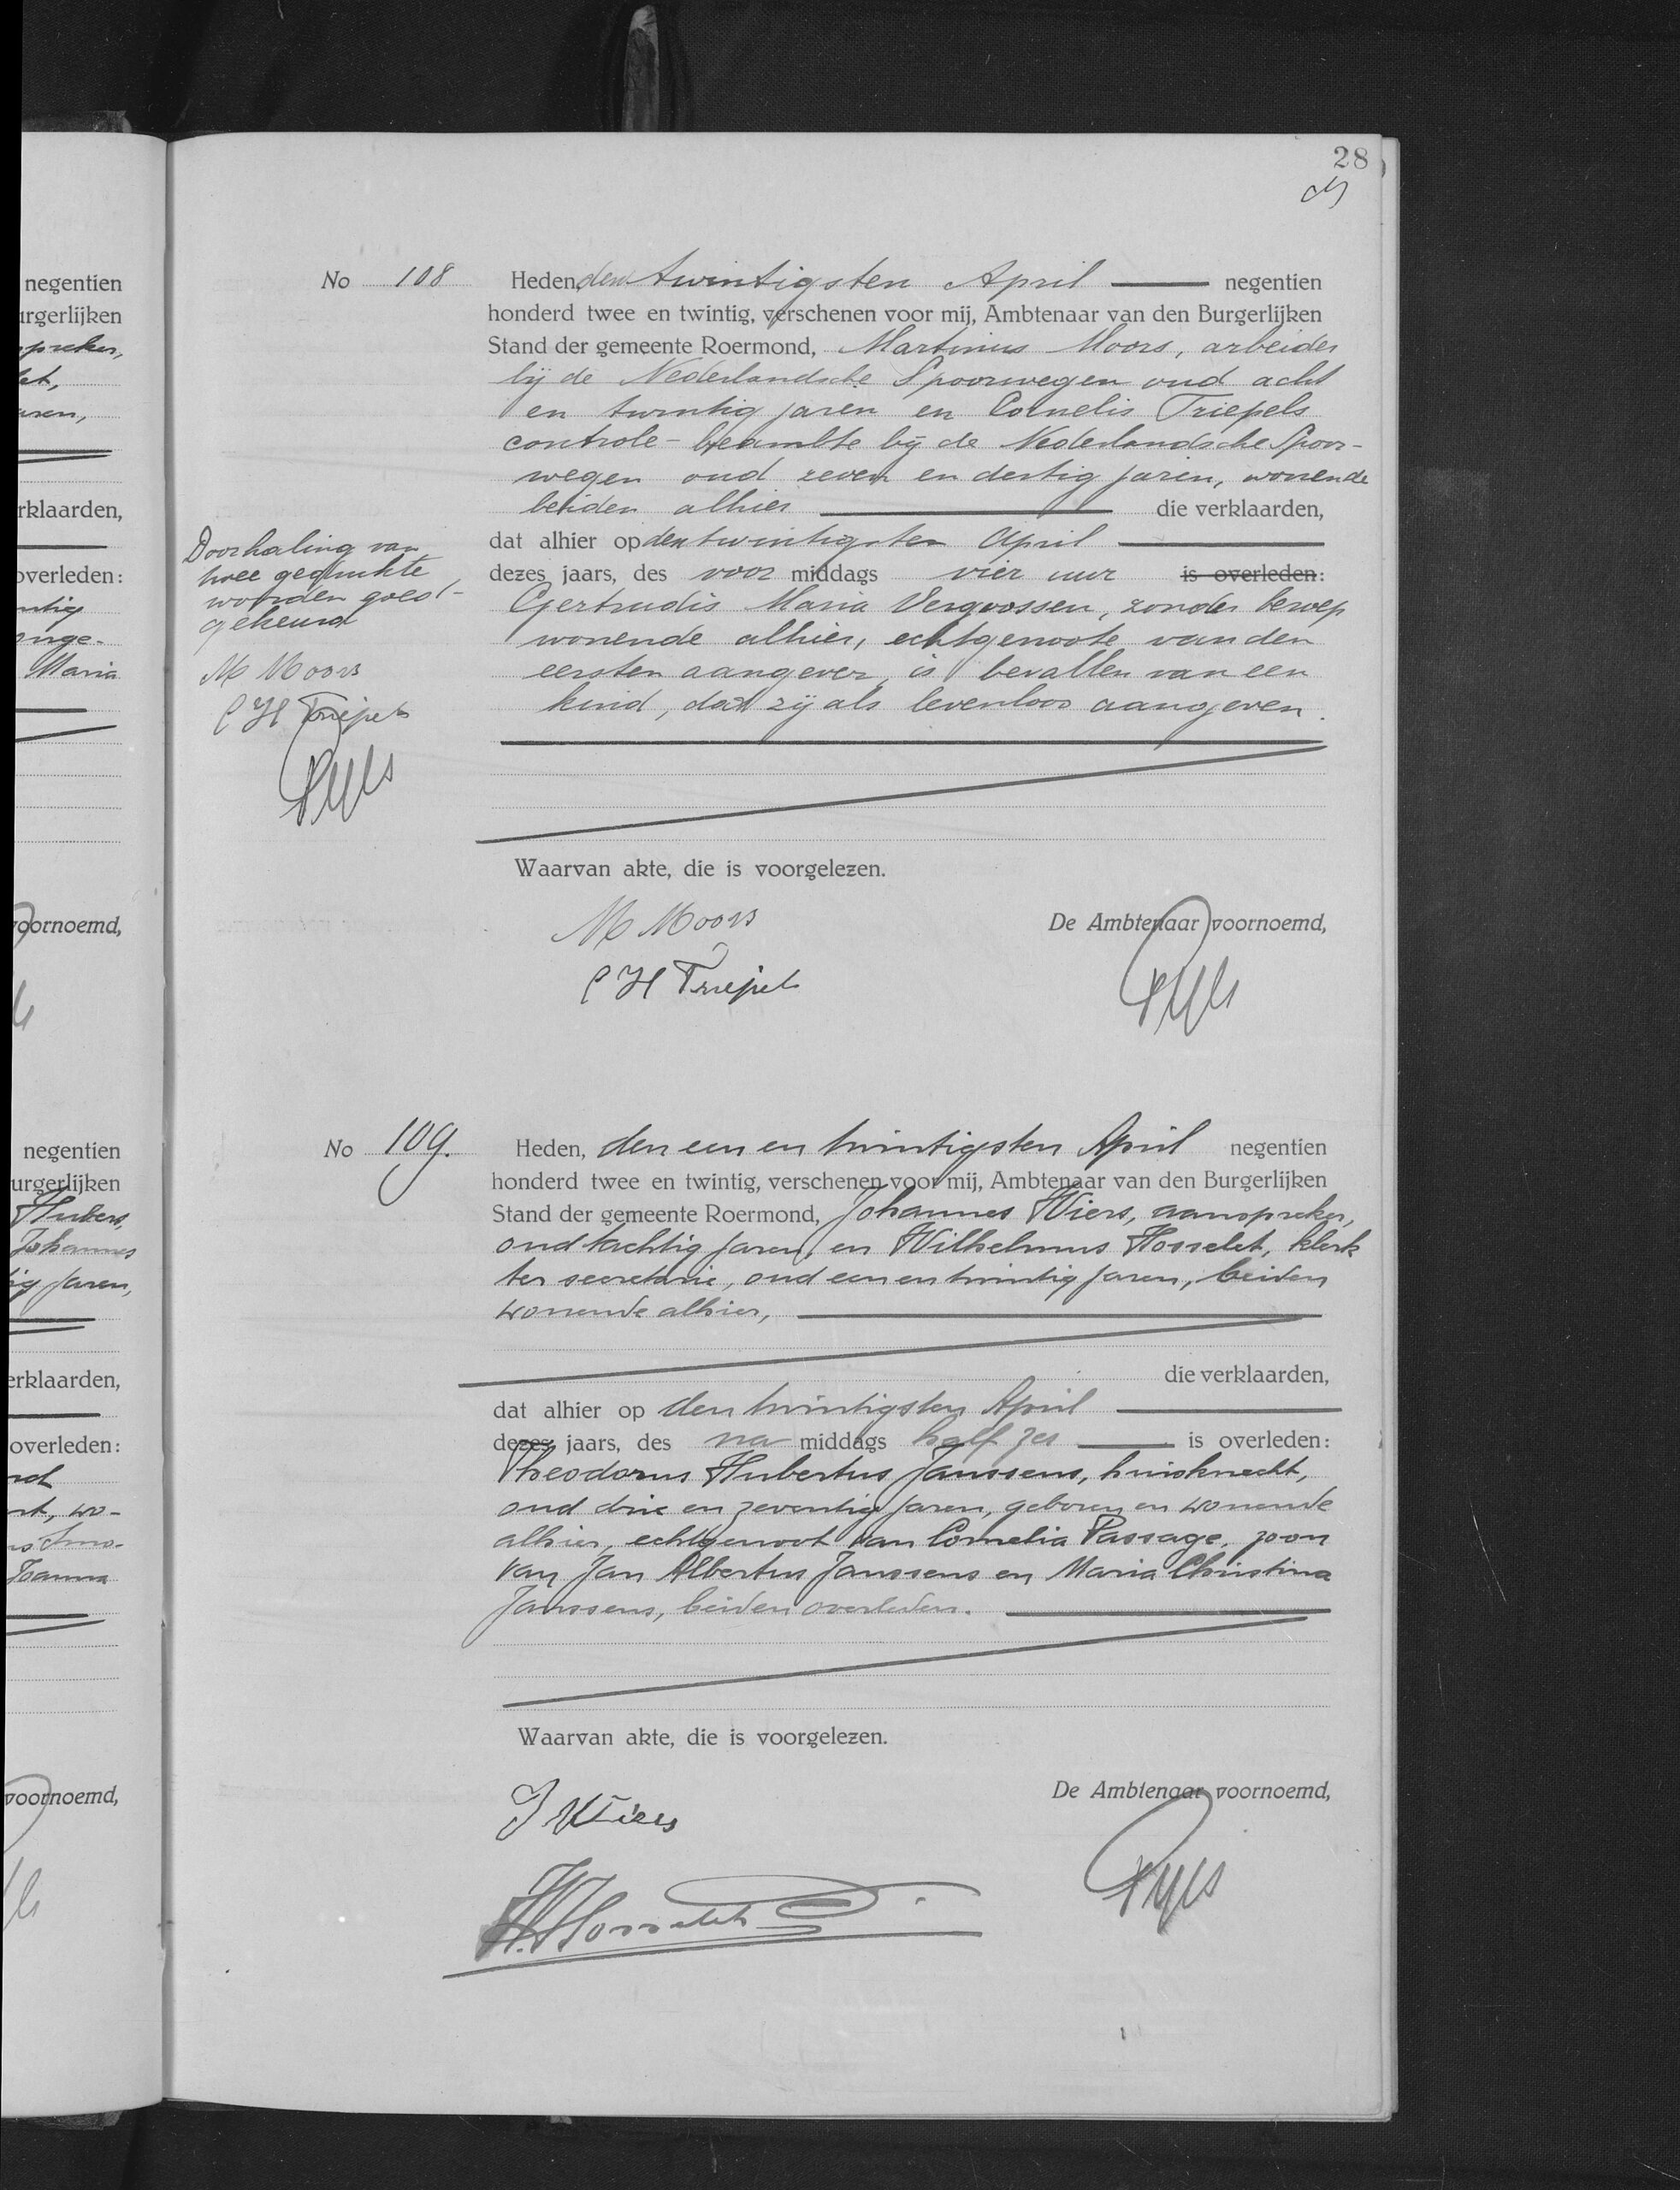 28
No 108 Heden, den twintigsten April negentien
honderd twee en twintig, verschenen voor mij, Ambtenaar van den Burgerlijken
Stand der gemeente Roermond, Martinus Moors, arbeider
bij de Nederlandsche Spoorwegen oud acht
en twintig jaren en Cornelis Triepels
controle-beambte bij de Nederlandsche Spoor-
wegen oud zeven en dertig jaren, wonende
beiden alhier die verklaarden,
dat alhier op den twintigsten April
dezes jaars, des voor middags vier uur is overleden:
Gertrudis Maria Vergoossen, zonder beroep
wonende alhier, echtgenoote van den
eersten aangever, is bevallen van een
kind, dat zij als levenloos aangeven.
Doorhaling van
twee gedrukte
woorden goed-
gekeurd
M Moors
C H Triepels
Waarvan akte, die is voorgelezen.
M Moors
C H Triepels
De Ambtenaar voornoemd,
No 109. Heden, den een en twintigsten April negentien
honderd twee en twintig, verschenen voor mij, Ambtenaar van den Burgerlijken
Stand der gemeente Roermond, Johannes Wiers, aanspreker,
oud tachtig jaren, en Wilhelmus Hosselet, klerk
ter secretarie, oud een en twintig jaren, beiden
wonende alhier,
die verklaarden,
dat alhier op den twintigsten April
dezes jaars, des na middags half zes is overleden:
Theodorus Hubertus Janssens, huisknecht,
oud drie en zeventig jaren, geboren en wonende
alhier, echtgenoot van Cornelia Passage, zoon
van Jan Albertus Janssens en Maria Christina
Janssens, beiden overleden.
Waarvan akte, die is voorgelezen.
J Wiers
W. Hosselet
De Ambtenaar voornoemd,
negentien
urgerlijken
rklaarden,
overleden:
Maria
voornoemd,
negentien
urgerlijken
Hubers,
Johannes
ig jaren,
erklaarden,
overleden:
voornoemd,